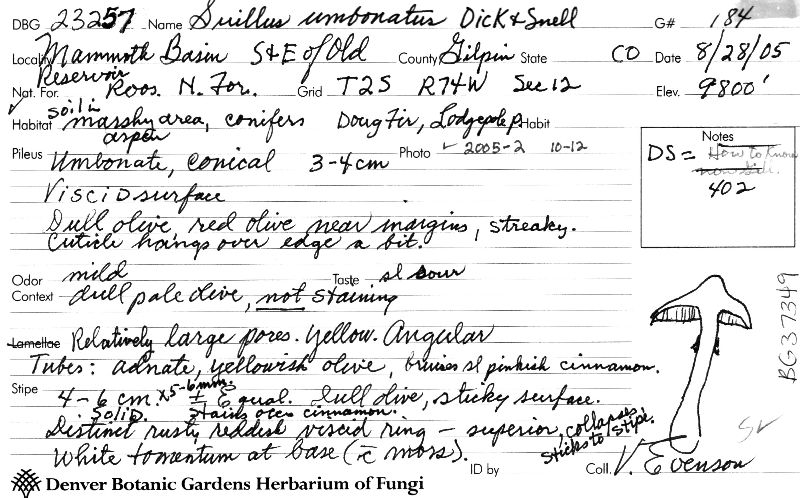 DBG 23257 Name Suillus umbonatus Dick & Snell G# 184
Locality Mammoth Basin S & E of Old County Gilpin State CO Date 8/28/05
Reservoir
Nat. For. Roos. N. For. Grid T2S R74W Sec 12 Elev. 9800'
soil in
Habitat marshy area, conifers Doug Fir, Lodgepole P. Habit
aspen
Pileus Umbonate, conical 3-4 cm Photo ✓ 2005-2 10-12
Notes
DS = How to Know
non Gil.
402
Viscid surface
Dull olive, red olive near margins, streaky.
Cuticle hangs over edge a bit.
Odor mild Taste sl sour
Context dull pale olive, not staining
Lamellae Relatively large pores. Yellow. Angular
Tubes: adnate, yellowish olive, bruises sl pinkish cinnamon.
Stipe 4-6 cm. x 5-6 mm. ± Equal. Dull olive, sticky surface.
Solid. Stains ocer cinnamon.
Distinct rusty reddish viscid ring – superior, collapses, sticks to stipe.
White tomentum at base (c̄ moss).
ID by Coll. V. Evenson
Denver Botanic Gardens Herbarium of Fungi
BG37349